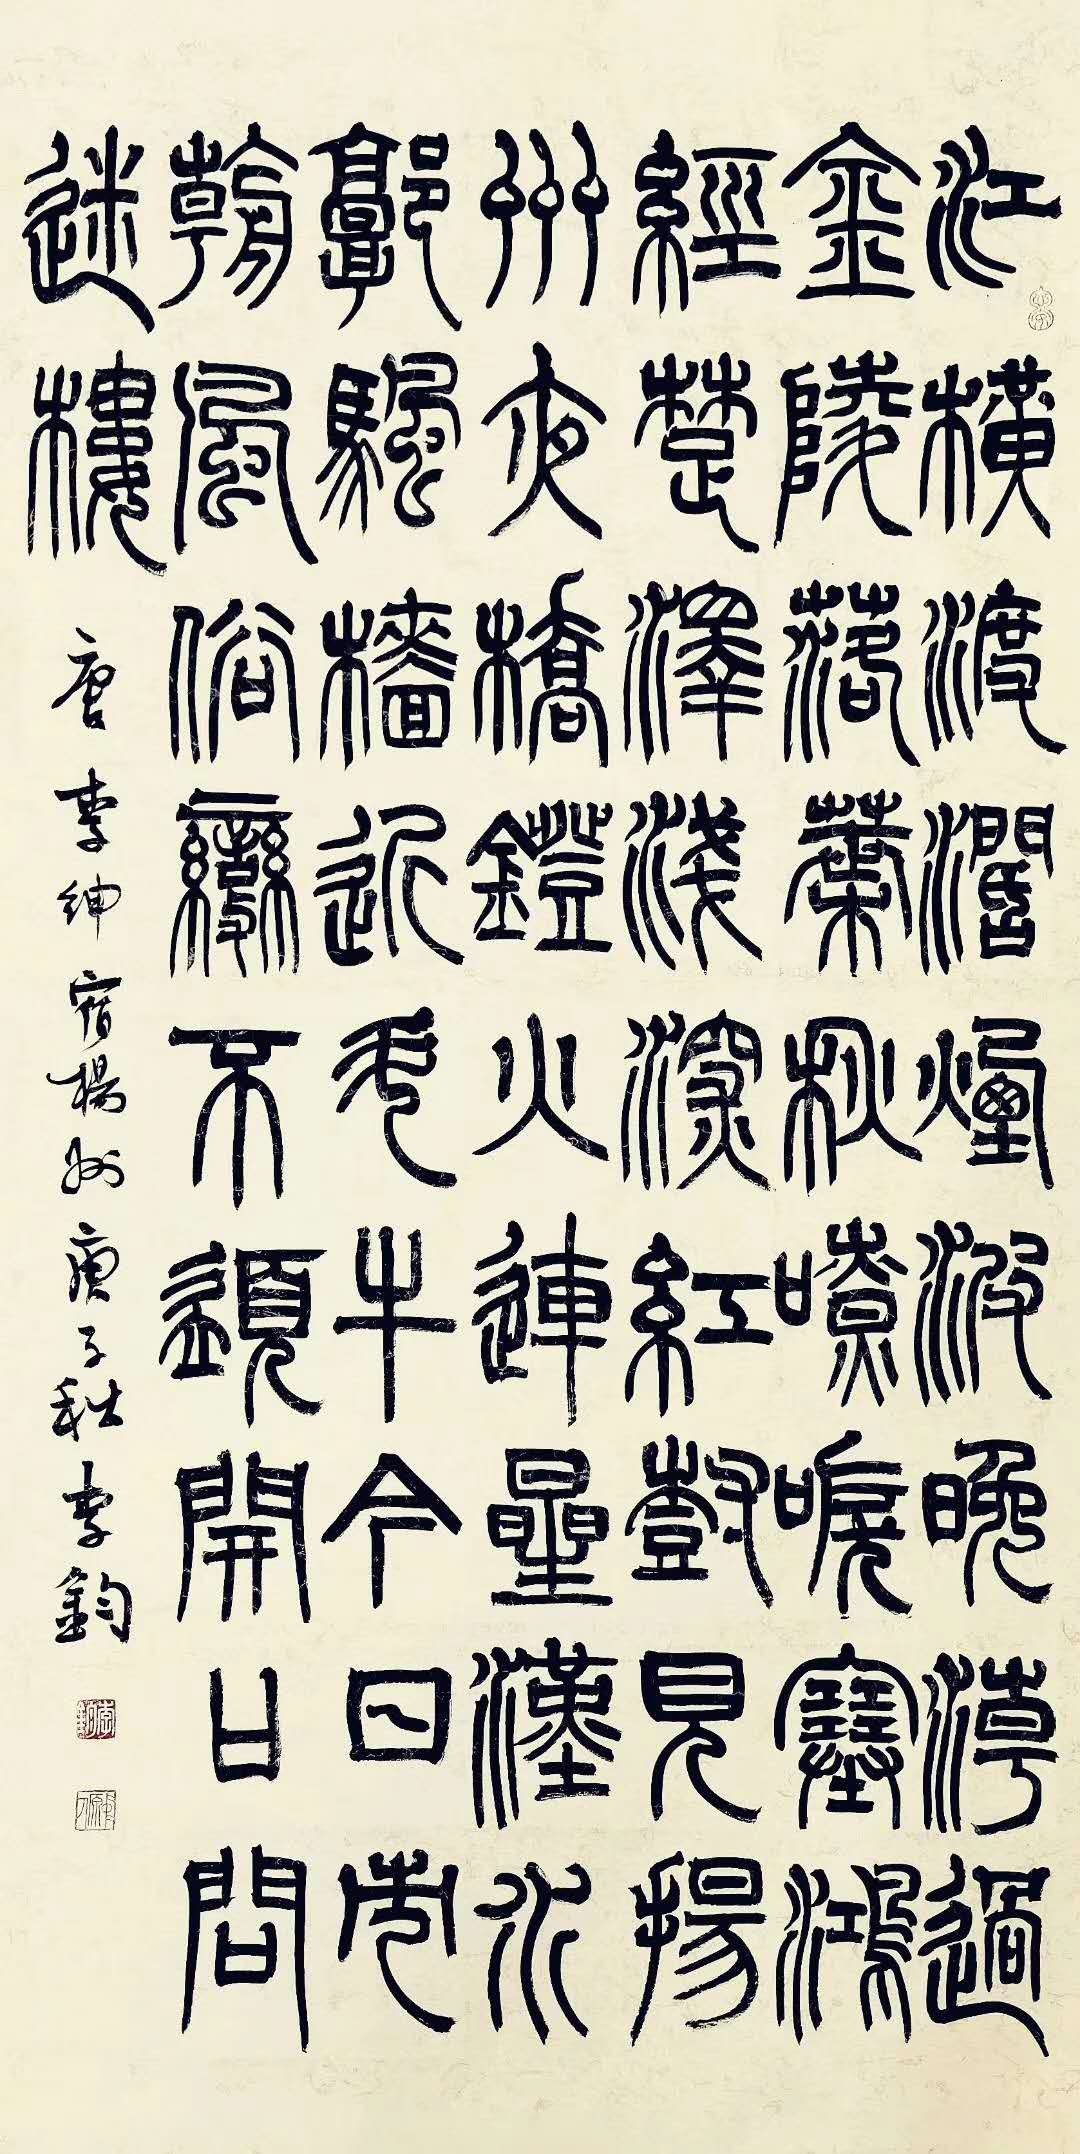 江橫渡濶煙波晚潮過
金陵落葉秋嘹唳塞鴻
經楚澤淺深紅樹見揚
州夜橋鐙火連星漢水
郭颿檣近斗牛今日市
朝風俗變不須開口問
迷樓
唐李紳宿楊州庚子秋李鈞